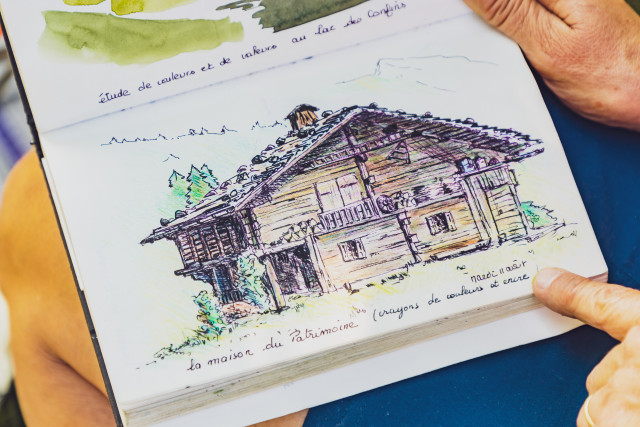 étude de couleurs et de valeurs au lac des Confins
"mardi 11 août"
la maison du Patrimoine (crayons de couleurs et encre)